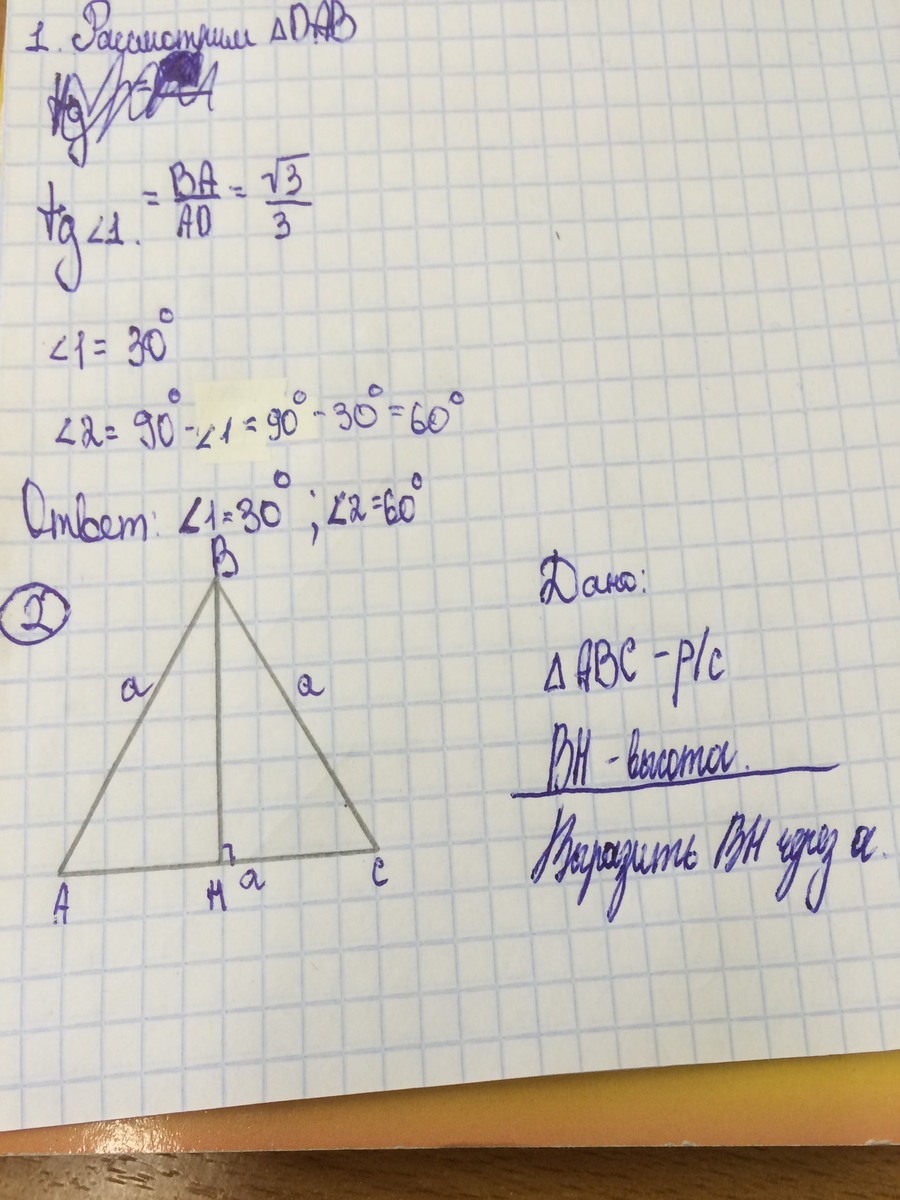 1. Рассмотрим △DAB
tg∠1. = BA/AD = √3/3
∠1 = 30°
∠2 = 90° - ∠1 = 90° - 30° = 60°
Ответ: ∠1=30° ; ∠2=60°
2
B
a a
A H a C
Дано:
△ABC - р/с
BH - высота.
Выразить BH через a.